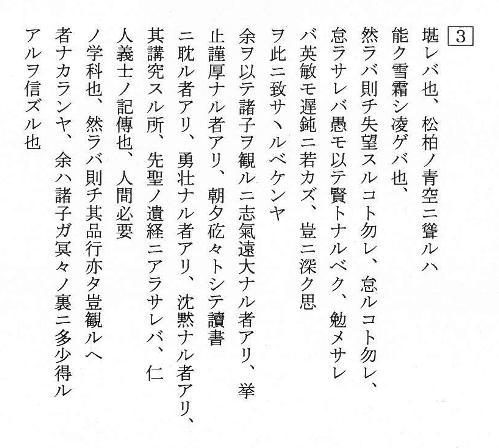 3
堪レバ也、松柏ノ青空ニ聳ルハ
能ク雪霜シ凌ゲバ也、
然ラバ則チ失望スルコト勿レ、怠ルコト勿レ、
怠ラサレバ愚モ以テ賢トナルベク、勉メサレ
バ英敏モ遅鈍ニ若カズ、豈ニ深ク思
ヲ此ニ致サヽルベケンヤ
余ヲ以テ諸子ヲ観ルニ志氣遠大ナル者アリ、挙
止謹厚ナル者アリ、朝夕矻々トシテ讀書
ニ耽ル者アリ、勇壮ナル者アリ、沈黙ナル者アリ、
其講究スル所、先聖ノ遺経ニアラサレバ、仁
人義士ノ記傳也、人間必要
ノ学科也、然ラバ則チ其品行亦タ豈観ルヘ
者ナカランヤ、余ハ諸子ガ冥々ノ裏ニ多少得ル
アルヲ信ズル也